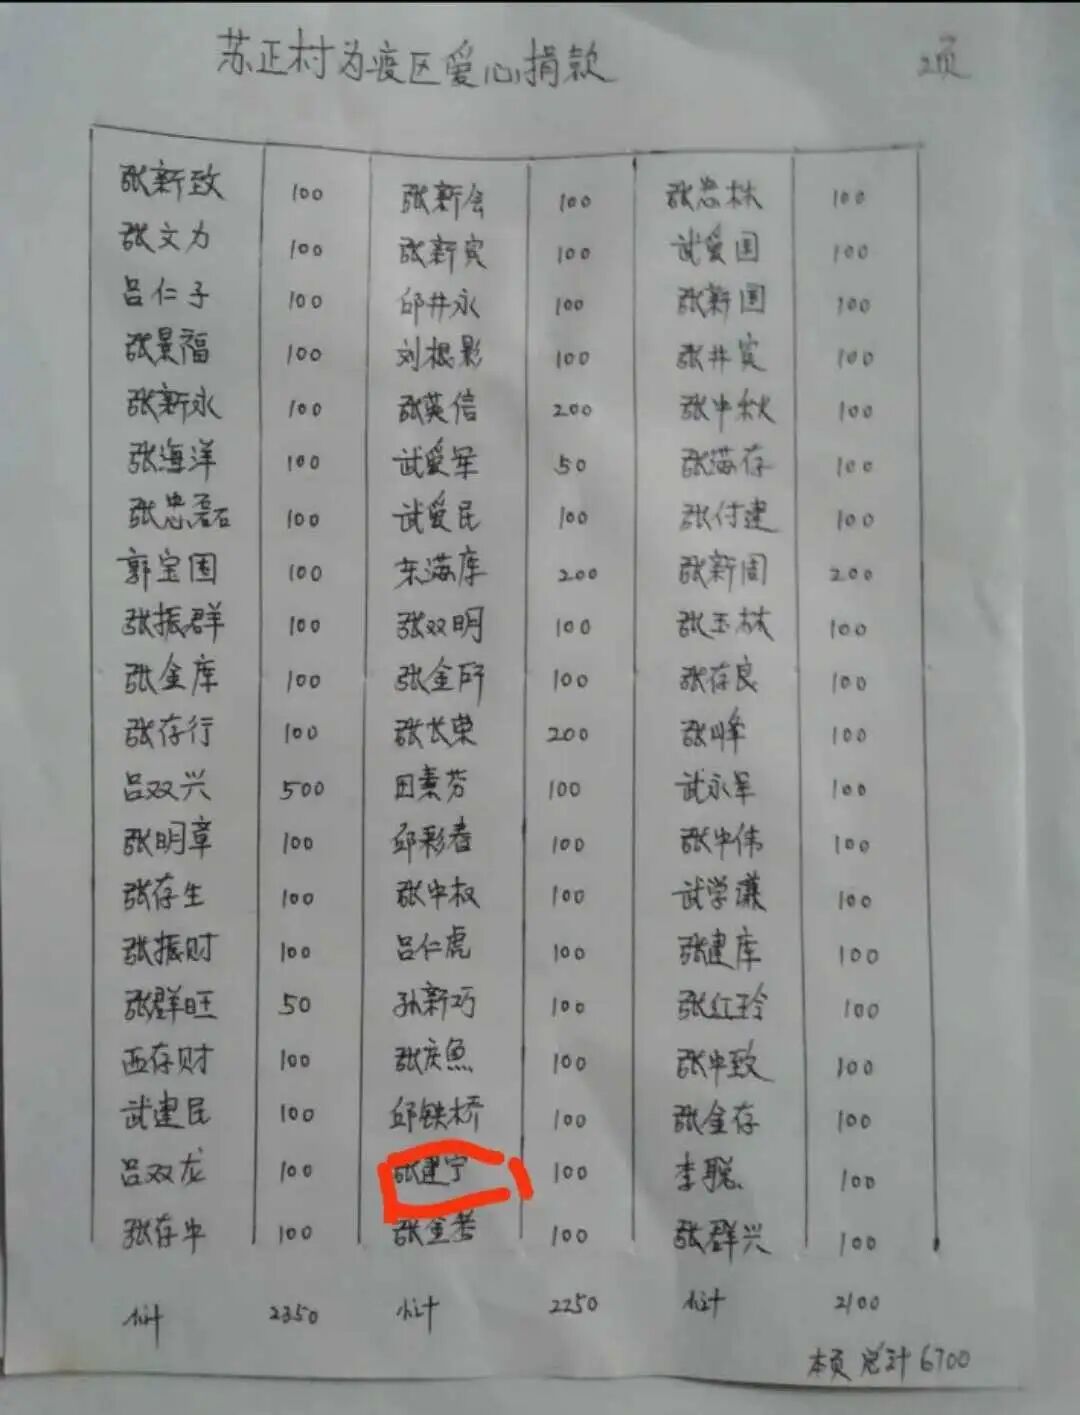 苏正村为疫区爱心捐款 2页
张新致 100 张新会 100 张忠林 100
张文力 100 张新宾 100 武爱国 100
吕仁子 100 邱井永 100 张新国 100
张景福 100 刘根影 100 张井宾 100
张新永 100 张英信 200 张中秋 100
张海洋 100 武爱军 50 张满存 100
张忠磊 100 武爱民 100 张付建 100
郭宝国 100 东满库 200 张新周 200
张振群 100 张双明 100 张玉林 100
张金库 100 张金所 100 张存良 100
张存行 100 张长荣 200 张峰 100
吕双兴 500 田素芬 100 武永军 100
张明章 100 邱彩春 100 张中伟 100
张存生 100 张中权 100 武学谦 100
张振财 100 吕仁虎 100 张建库 100
张群旺 50 孙新巧 100 张红玲 100
西存财 100 张庆鱼 100 张中致 100
武建民 100 邱铁桥 100 张金存 100
吕双龙 100 张建宁 100 李聪 100
张存中 100 张金考 100 张群兴 100
小计 2350 小计 2250 小计 2100
本页总计6700